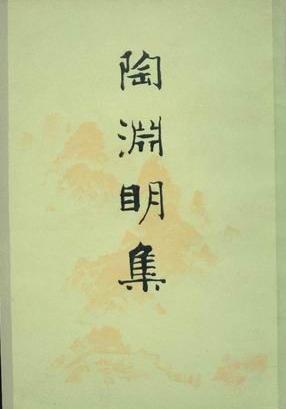 陶淵明集